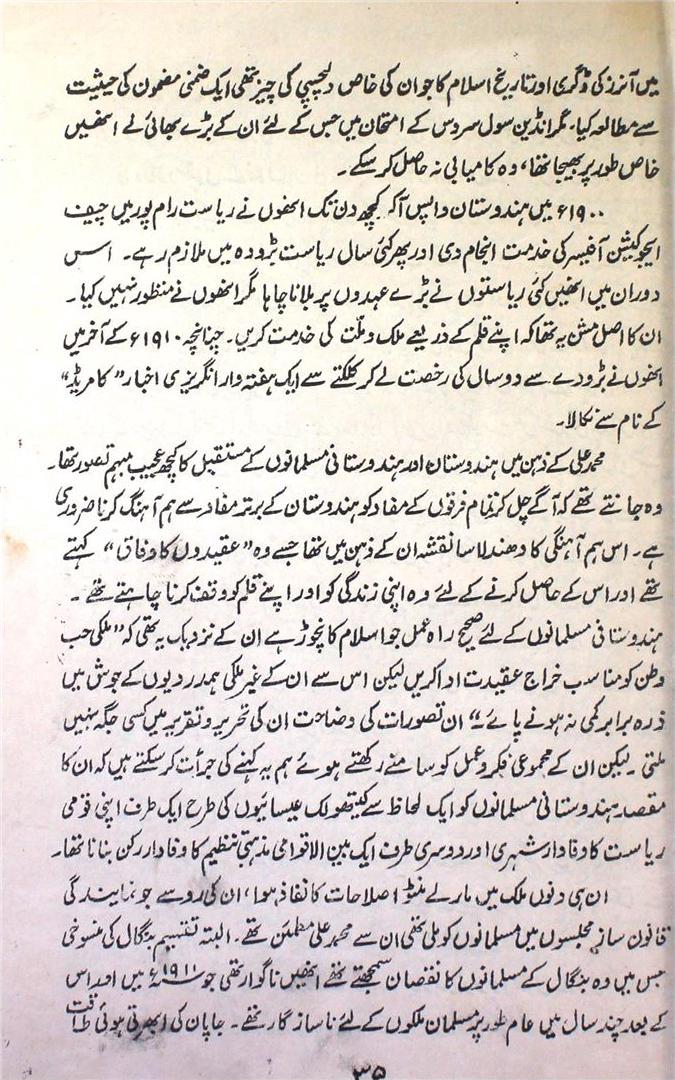 میں آنرز کی ڈگری اور تاریخ اسلام کا جو ان کی خاص دلچسپی کی چیز تھی ایک ضمنی مضمون کی حیثیت
سے مطالعہ کیا۔ مگر انڈین سول سروس کے امتحان میں جس کے لئے ان کے بڑے بھائی نے انھیں
خاص طور پر بھیجا تھا، وہ کامیابی نہ حاصل کر سکے۔
۱۹۰۰ء میں ہندوستان واپس آکر کچھ دن تک انھوں نے ریاست رام پور میں چیف
ایجوکیشن آفیسر کی خدمت انجام دی اور پھر کئی سال ریاست بڑودہ میں ملازم رہے۔ اسس
دوران میں انھیں کئی ریاستوں نے بڑے عہدوں پر بلانا چاہا مگر انھوں نے منظور نہیں کیا۔
ان کا اصل مشن یہ تھا کہ اپنے قلم کے ذریعے ملک و ملّت کی خدمت کریں۔ چنانچہ ۱۹۱۰ء کے آخر میں
انھوں نے بڑودے سے دو سال کی رخصت لے کر کلکتے سے ایک ہفتہ وار انگریزی اخبار "کامریڈ"
کے نام سے نکالا۔
محمد علی کے ذہن میں ہندوستان اور ہندوستانی مسلمانوں کے مستقبل کا کچھ عجیب مبہم تصور تھا۔
وہ جانتے تھے کہ آگے چل کر تمام فرقوں کے مفاد کو ہندوستان کے برتر مفاد سے ہم آہنگ کرنا ضروری
ہے۔ اس ہم آہنگی کا دھندلا سا نقشہ ان کے ذہن میں تھا جسے وہ "عقیدوں کا وفاق" کہتے
تھے اور اس کے حاصل کرنے کے لئے وہ اپنی زندگی کو اور اپنے قلم کو وقف کرنا چاہتے تھے۔
ہندوستانی مسلمانوں کے لئے صحیح راہ عمل جو اسلام کا نچوڑ ہے ان کے نزدیک یہ تھی کہ "ملکی حب
وطن کو مناسب خراج عقیدت ادا کریں لیکن اس سے ان کے غیر ملکی ہمدردیوں کے جوش میں
ذرہ برابر کمی نہ ہونے پائے۔" ان تصورات کی وضاحت ان کی تحریر و تقریر میں کسی جگہ نہیں
ملتی۔ لیکن ان کے مجموعی فکر و عمل کو سامنے رکھتے ہوئے ہم یہ کہنے کی جرأت کر سکتے ہیں کہ ان کا
مقصد ہندوستانی مسلمانوں کو ایک لحاظ سے کیتھولک عیسائیوں کی طرح ایک طرف اپنی قومی
ریاست کا وفادار شہری اور دوسری طرف ایک بین الاقوامی مذہبی تنظیم کا وفادار رکن بنانا تھا۔
ان ہی دنوں ملک میں مارلے منٹو اصلاحات کا نفاذ ہوا، ان کی رو سے جو نمایندگی
قانون ساز مجلسوں میں مسلمانوں کو ملی تھی ان سے محمد علی مطمئن تھے۔ البتہ تقسیم بنگال کی منسوخی
جس میں وہ بنگال کے مسلمانوں کا نقصان سمجھتے تھے انھیں ناگوار تھی جو ۱۹۱۱ء میں اور اس
کے بعد چند سال میں عام طور پر مسلمان ملکوں کے لئے ناسازگار تھے۔ جاپان کی ابھرتی ہوئی طاقت
۳۵